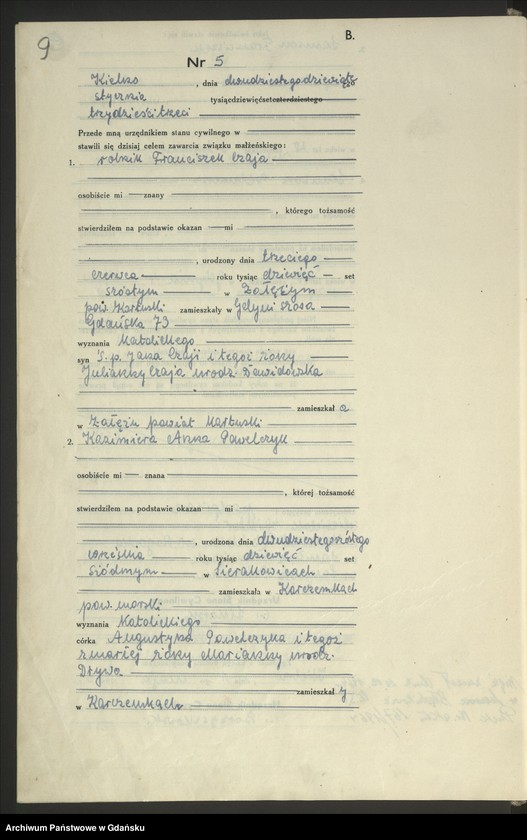 9
B.
Nr 5
Kielno, dnia dwudziestegodziewiąte
stycznia tysiącdziewięćsetczterdziestego
trzydzieści trzeci
Przede mną urzędnikiem stanu cywilnego w
stawili się dzisiaj celem zawarcia związku małżeńskiego:
1. rolnik Franciszek Czaja
osobiście mi znany
, którego tożsamość
stwierdziłem na podstawie okazan mi
, urodzony dnia trzeciego
czerwca roku tysiąc dziewięć set
szóstym w Załężym
pow. Kartuski zamieszkały w Gdyni szosa
Gdańska 73
wyznania Katolickiego
syn ś.p. Jana Czaji i tegoż żony
Julianny Czaja urodz. Dawidowska
zamieszkał a
w Załężu powiat Kartuski
2. Kazimiera Anna Pawelczyk
osobiście mi znana
, której tożsamość
stwierdziłem na podstawie okazan mi
, urodzona dnia dwudziestegoszóstego
września roku tysiąc dziewięć set
siódmym w Sierakowicach
zamieszkała w Karczemkach
pow. morski
wyznania Katolickiego
córka Augustyna Pawelczyka i tegoż
zmarłej żony Marianny urodz.
zamieszkał y
w Karczemkach
Archiwum Państwowe w Gdańsku